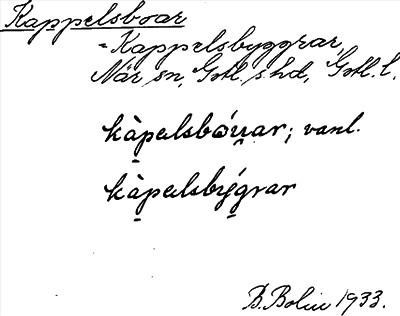 Kappelsboar
= Kappelsbyggrar,
När sn, Gotl. s hd, Gotl. l.
kàpälsbóu̯ar; vanl.
kàpälsbýgrar
B. Bolin 1933.